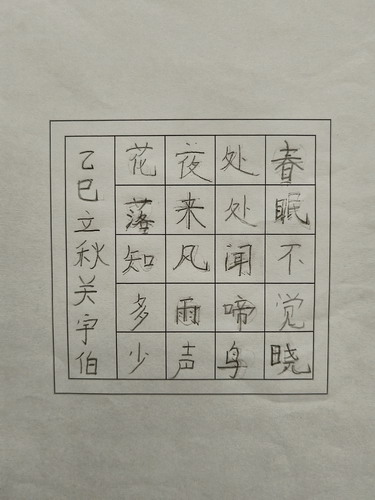 春眠不觉晓
处处闻啼鸟
夜来风雨声
花落知多少
乙巳立秋关宇伯